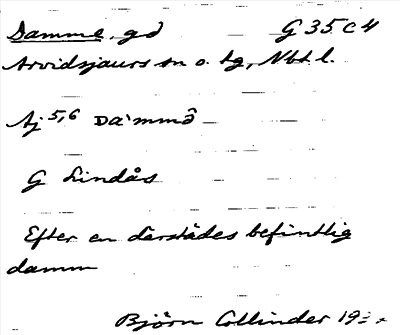 Damme, gd G 35 C 4
Arvidsjaurs sn o. tg, Nbt. l.
Aj 5,6 Da`mmə̂
G Lindås
Efter en därstädes befintlig
damm
Björn Collinder 19